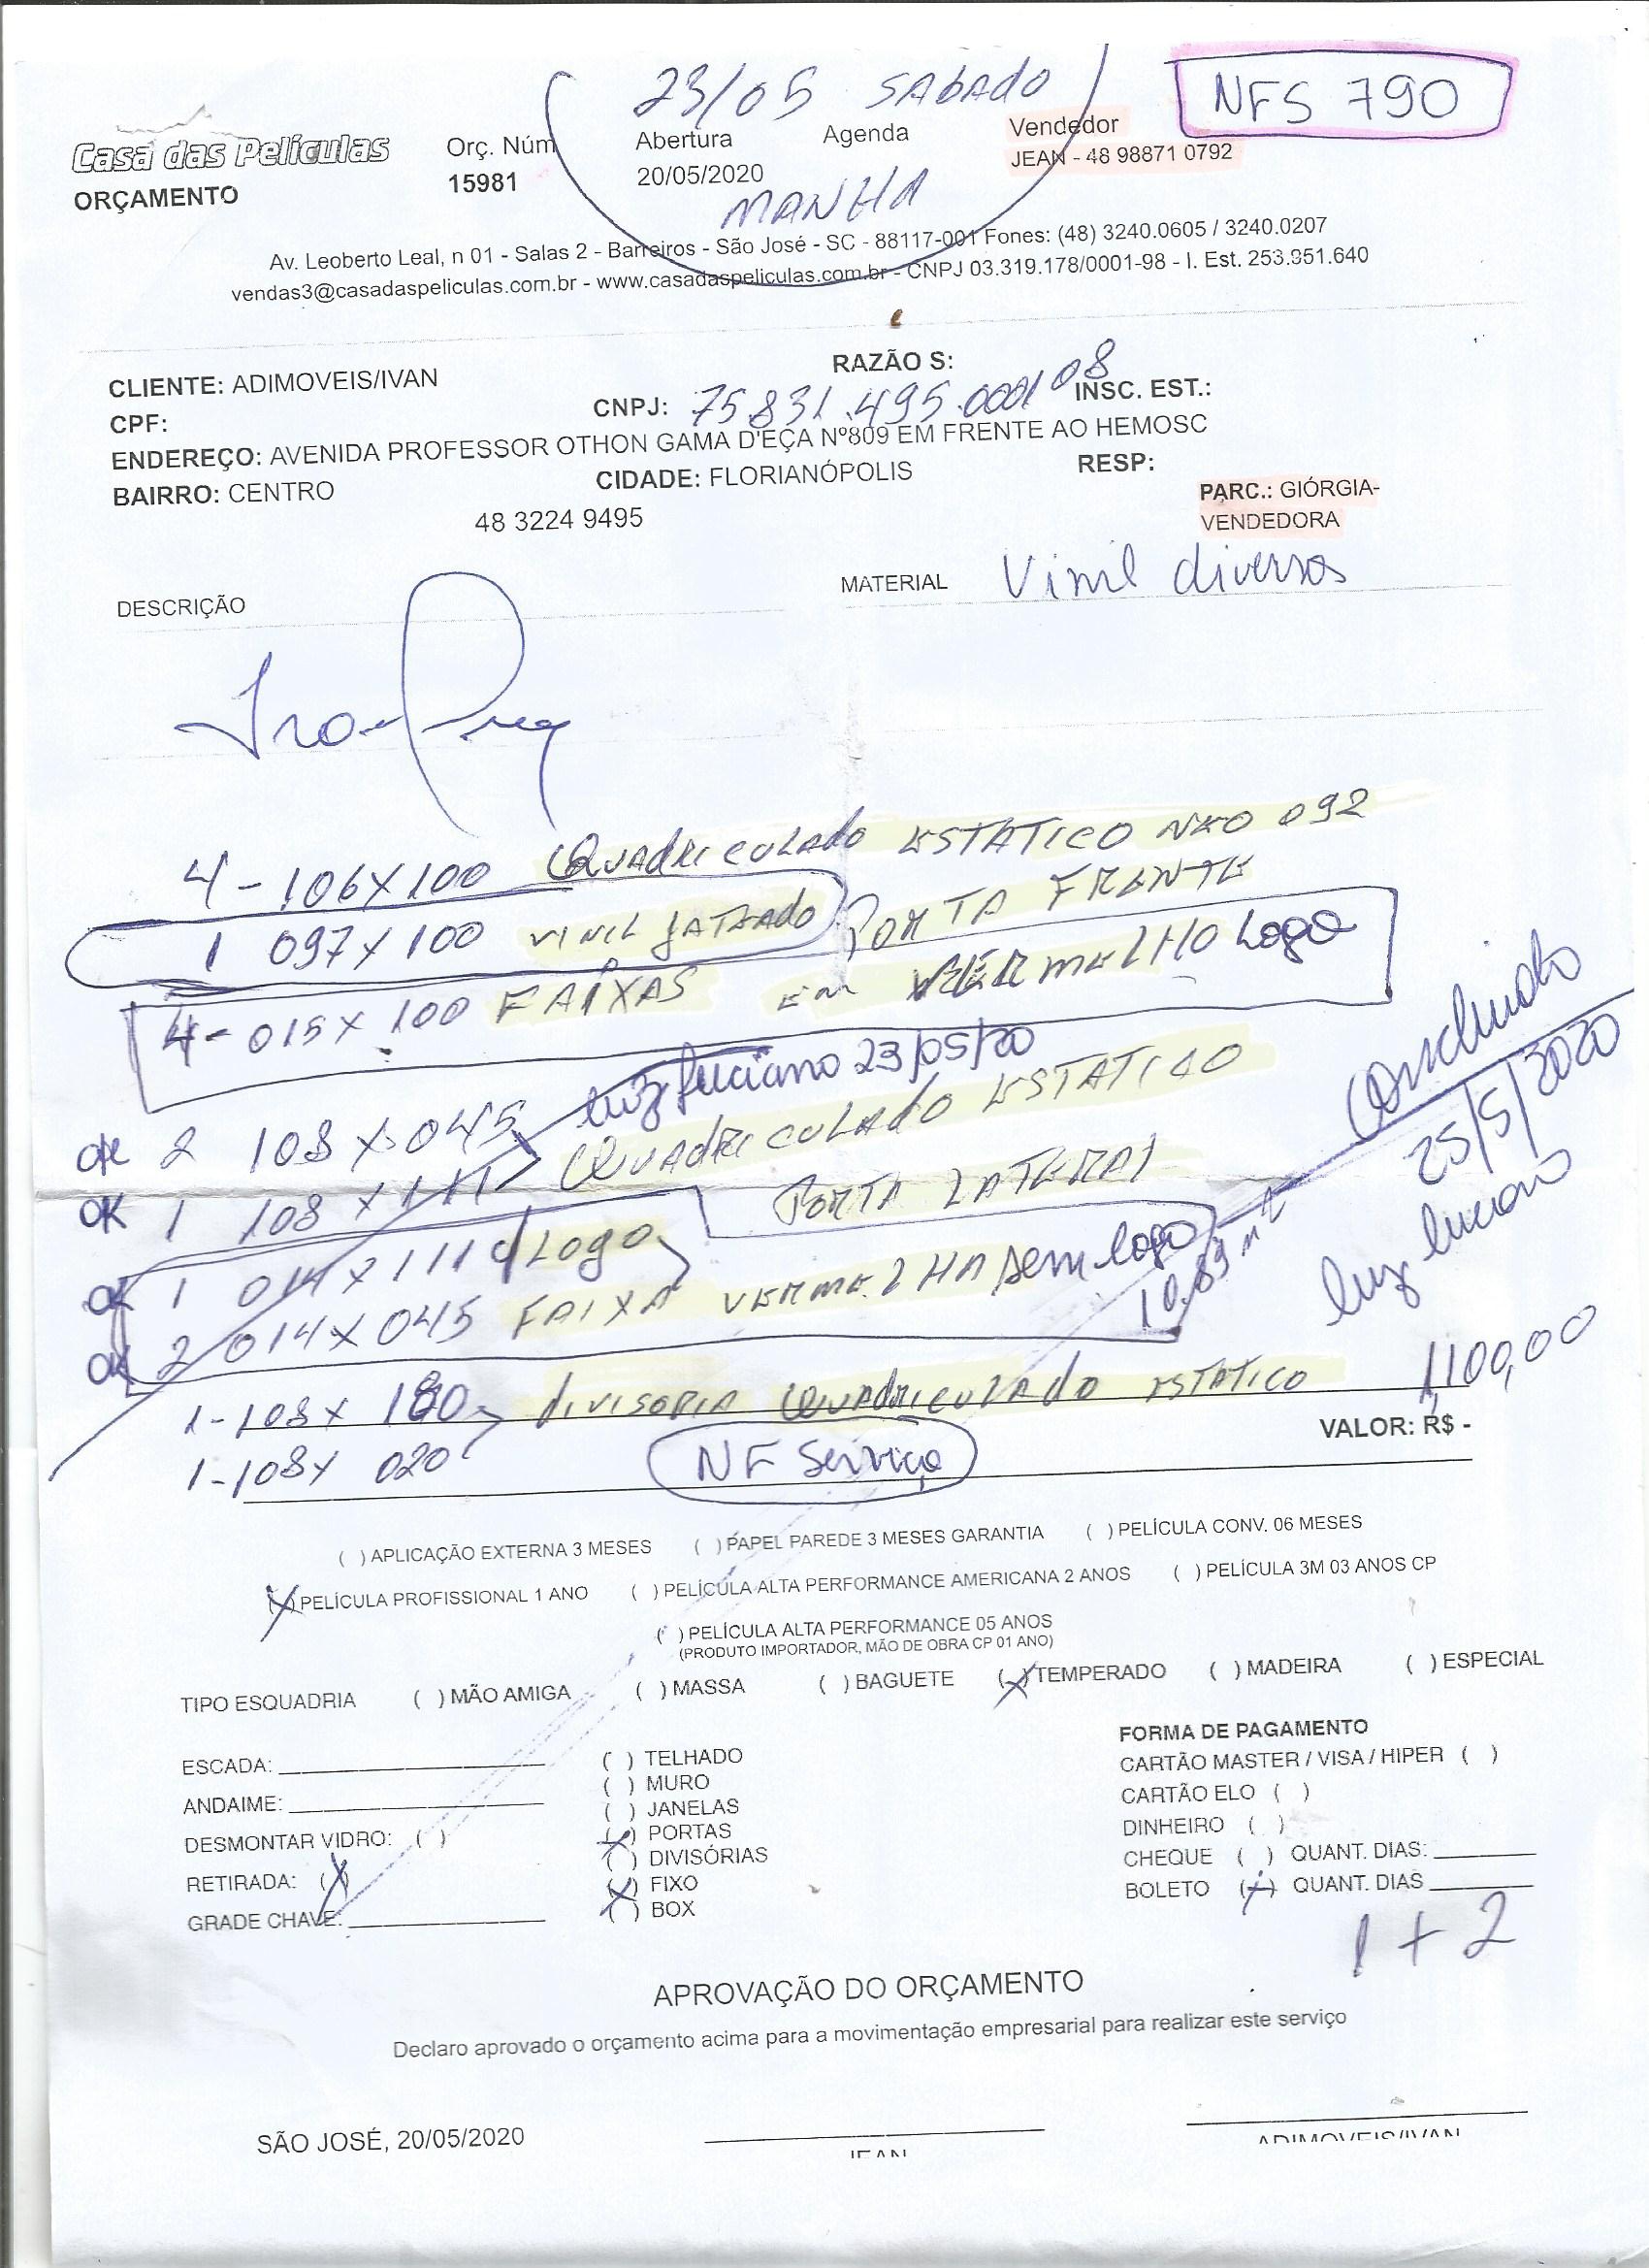 23/05 SABADO
NFS 790
Casa das Películas
Orç. Núm
Abertura
Agenda
Vendedor
ORÇAMENTO
15981
20/05/2020
JEAN - 48 98871 0792
MANHA
Av. Leoberto Leal, n 01 - Salas 2 - Barreiros - São José - SC - 88117-001 Fones: (48) 3240.0605 / 3240.0207
vendas3@casadaspeliculas.com.br - www.casadaspeliculas.com.br - CNPJ 03.319.178/0001-98 - I. Est. 253.951.640
CLIENTE: ADIMOVEIS/IVAN
RAZÃO S:
CPF:
CNPJ: 75.831.495.0001 08
INSC. EST.:
ENDEREÇO: AVENIDA PROFESSOR OTHON GAMA D'EÇA Nº809 EM FRENTE AO HEMOSC
BAIRRO: CENTRO
CIDADE: FLORIANÓPOLIS
RESP:
48 3224 9495
PARC.: GIÓRGIA-
VENDEDORA
DESCRIÇÃO
MATERIAL Vinil diversos
4 - 106 X 100 QUADRICULADO ESTATICO NÃO 092
1 097 X 100 VINIL JATEADO PORTA FRENTE
4 - 015 X 100 FAIXAS EM VERMELHO Logo
luiz luciano 23/05/20
ok 2 108 X 045 QUADRICULADO ESTATICO
ok 1 108 X 111
PORTA LATERAL
ok 1 014 X 111 c/ Logo
ok 2 014 X 045 FAIXA VERMELHA sem logo
10,89 m²
Concluido
25/5/2020
luiz luciano
1-108 X 180 DIVISORIA QUADRICULADO ESTATICO
1100,00
VALOR: R$ -
1-108 X 020
NF Serviço
( ) APLICAÇÃO EXTERNA 3 MESES ( ) PAPEL PAREDE 3 MESES GARANTIA ( ) PELÍCULA CONV. 06 MESES
(X) PELÍCULA PROFISSIONAL 1 ANO ( ) PELÍCULA ALTA PERFORMANCE AMERICANA 2 ANOS ( ) PELÍCULA 3M 03 ANOS CP
( ) PELÍCULA ALTA PERFORMANCE 05 ANOS
(PRODUTO IMPORTADOR, MÃO DE OBRA CP 01 ANO)
TIPO ESQUADRIA ( ) MÃO AMIGA ( ) MASSA ( ) BAGUETE (X) TEMPERADO ( ) MADEIRA ( ) ESPECIAL
ESCADA:
ANDAIME:
DESMONTAR VIDRO: ( )
RETIRADA: (X)
GRADE CHAVE:
( ) TELHADO
( ) MURO
( ) JANELAS
(X) PORTAS
( ) DIVISÓRIAS
(X) FIXO
( ) BOX
FORMA DE PAGAMENTO
CARTÃO MASTER / VISA / HIPER ( )
CARTÃO ELO ( )
DINHEIRO ( )
CHEQUE ( ) QUANT. DIAS:
BOLETO (X) QUANT. DIAS
1 + 2
APROVAÇÃO DO ORÇAMENTO
Declaro aprovado o orçamento acima para a movimentação empresarial para realizar este serviço
SÃO JOSÉ, 20/05/2020
JEAN
ADIMOVEIS/IVAN